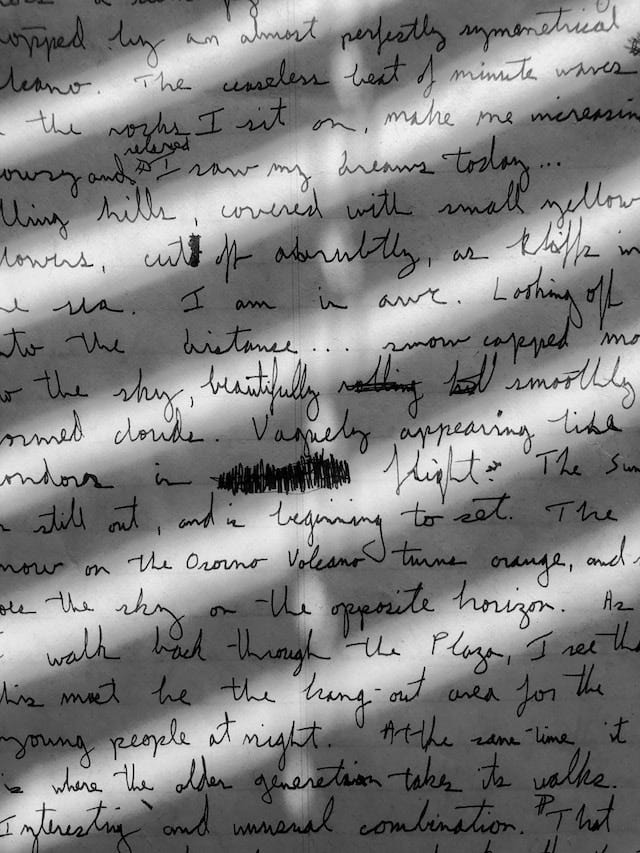 topped by an almost perfectly symmetrical
lcano. The ceaseless beat of minute waves
the rocks I sit on, make me increasin
relaxed
owsy and I saw my dreams today...
lling hills, covered with small yellow
lowers, cut off abrubtly, as kliffs in
he sea. I am in awe. Looking off
nto the distance.... snow capped mo
o the sky, beautifully smoothly
ormed clouds. Vaguely appearing like
ondors in flight. The Sun
is still out, and is beginning to set. The
now on the Osorno Volcano turns orange, and
oes the sky on the opposite horizon. As
I walk back through the Plaza, I see tha
his must be the hang-out area for the
young people at night. At the same-time it
is where the older generation takes its walks.
Interesting and unusual combination. That